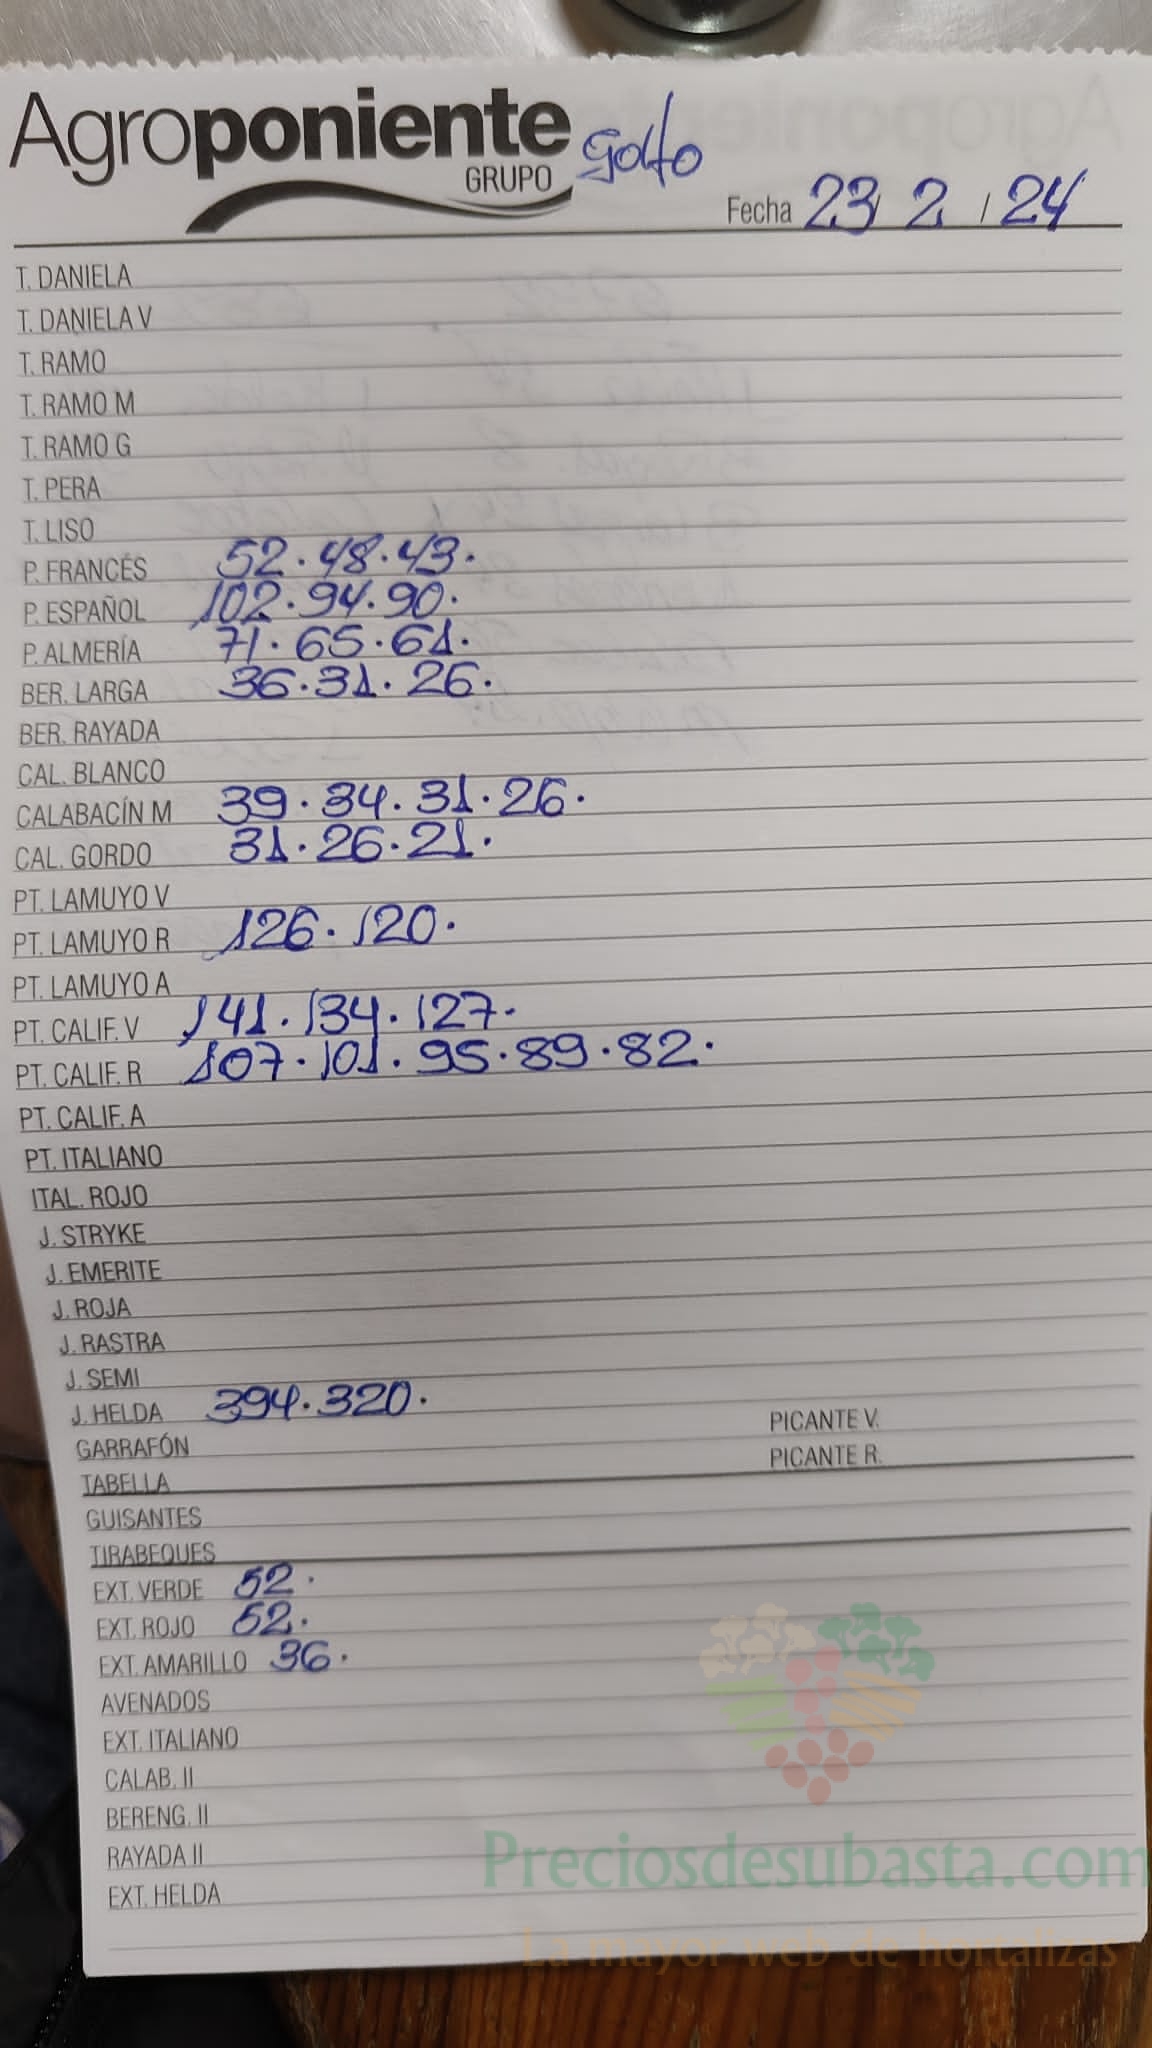 Agroponiente
GRUPO
Golfo
Fecha 23/ 2 / 24
T. DANIELA
T. DANIELA V
T. RAMO
T. RAMO M
T. RAMO G
T. PERA
T. LISO
P. FRANCÉS 52.48.43.
P. ESPAÑOL 102.94.90.
P. ALMERÍA 71.65.61.
BER. LARGA 36.31.26.
BER. RAYADA
CAL. BLANCO
CALABACÍN M 39.34.31.26.
CAL. GORDO 31.26.21.
PT. LAMUYO V
PT. LAMUYO R 126.120.
PT. LAMUYO A
PT. CALIF. V 141.134.127.
PT. CALIF. R 107.101.95.89.82.
PT. CALIF. A
PT. ITALIANO
ITAL. ROJO
J. STRYKE
J. EMERITE
J. ROJA
J. RASTRA
J. SEMI
J. HELDA 394.320.
GARRAFÓN PICANTE V.
TABELLA PICANTE R.
GUISANTES
TIRABEQUES
EXT. VERDE 52.
EXT. ROJO 52.
EXT. AMARILLO 36.
AVENADOS
EXT. ITALIANO
CALAB. II
BERENG. II
RAYADA II
EXT. HELDA
Preciosdesubasta.com
La mayor web de hortalizas